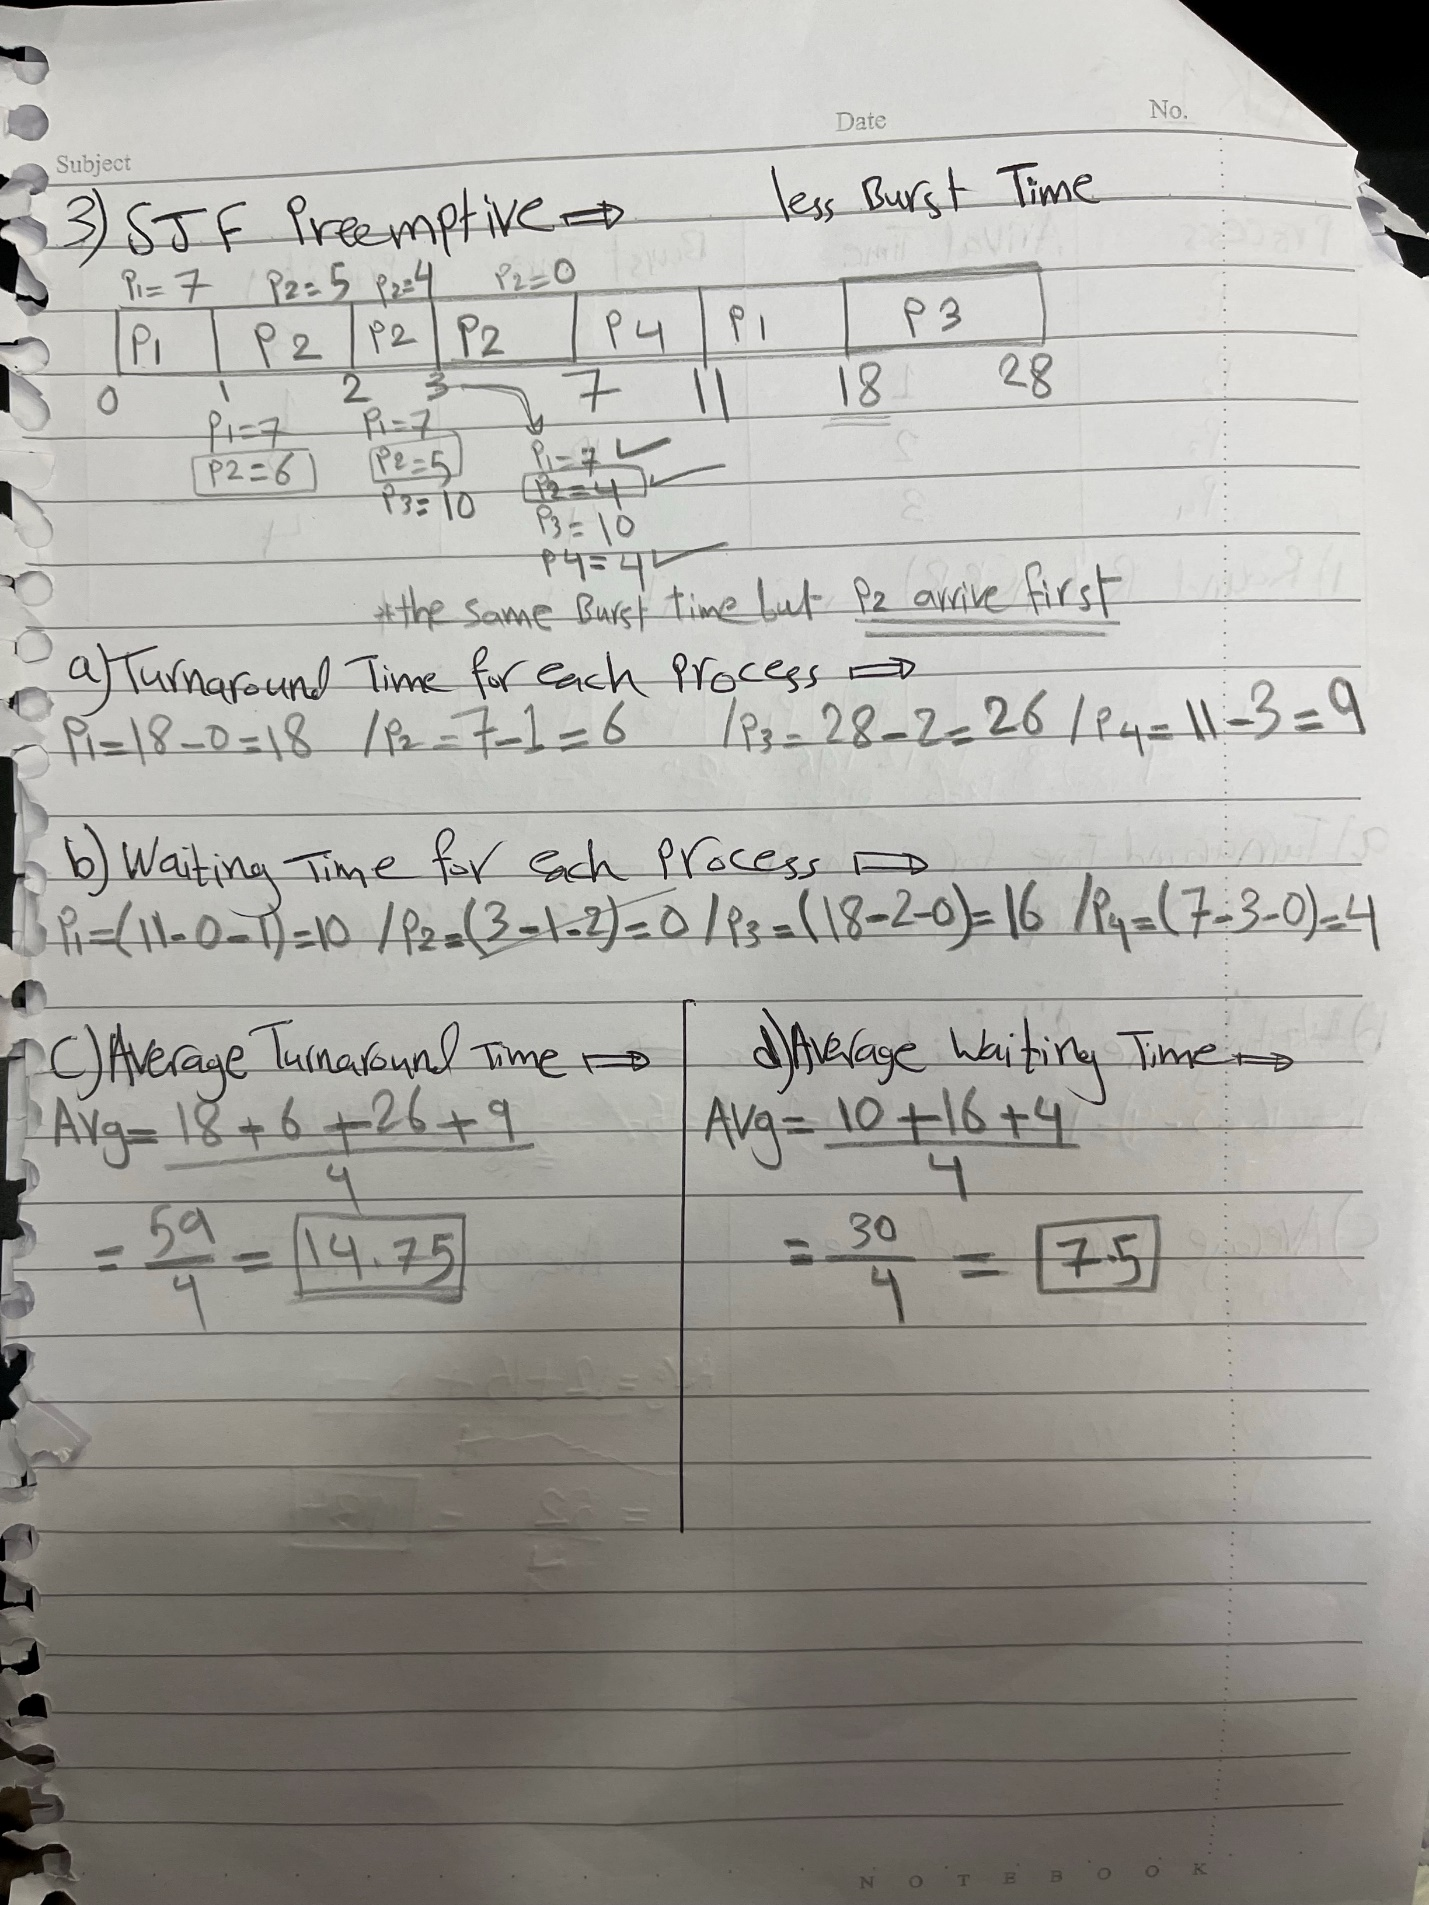 Date No.
Subject
3) SJF Preemptive ⇒ less Burst Time
P1=7 P2=5 P2=4 P2=0
P1 P2 P2 P2 P4 P1 P3
0 1 2 3 7 11 18 28
P1=7 P1=7 P1=7 ✓
P2=6 P2=5 P2=4 ✓
P3=10 P3=10
P4=4 ✓
*the same Burst time but P2 arrive first
a) Turnaround Time for each Process ⇒
P1=18-0=18 /P2=7-1=6 /P3=28-2=26 /P4=11-3=9
b) Waiting Time for each Process ⇒
P1=(11-0-1)=10 /P2=(3-1-2)=0 /P3=(18-2-0)=16 /P4=(7-3-0)=4
c) Average Turnaround Time ⇒
Avg=18+6+26+9
4
=59/4=14.75
d) Average Waiting Time ⇒
Avg=10+16+4
4
=30/4=7.5
NOTEBOOK